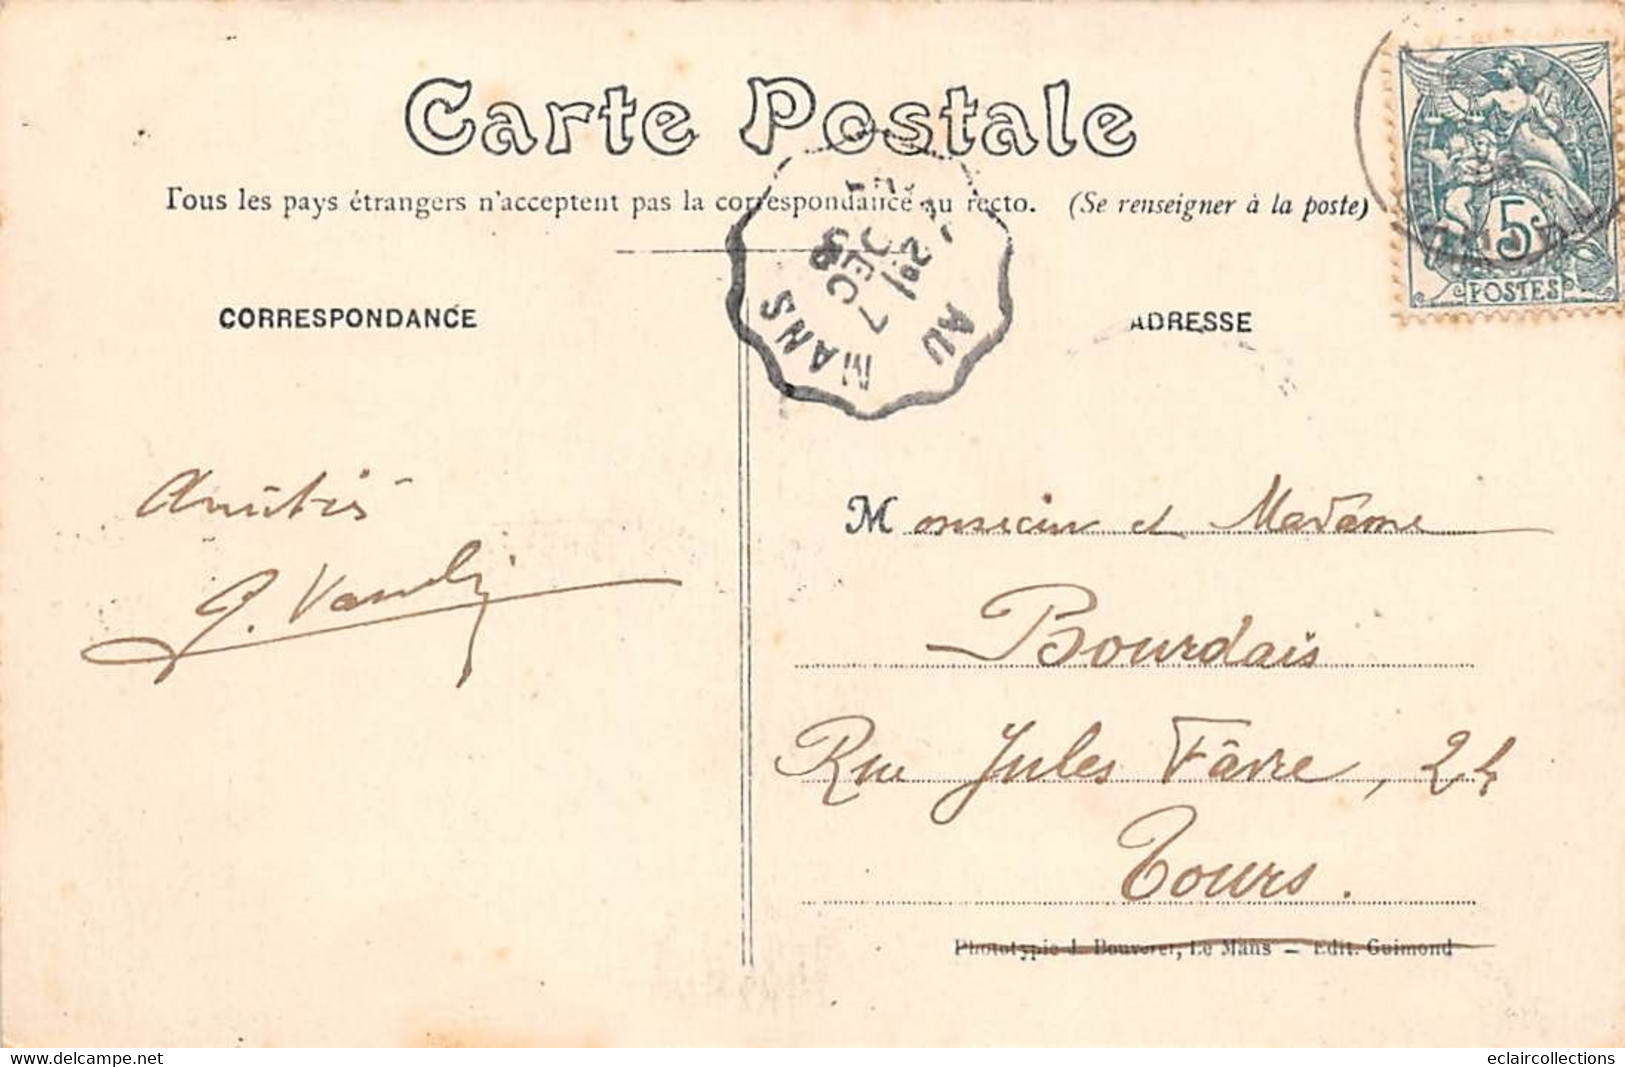 Carte Postale
Tous les pays étrangers n'acceptent pas la correspondance au recto. (Se renseigner à la poste)
CORRESPONDANCE
ADRESSE
AU MANS
7
DEC
08
5c
POSTES
Amitiés
Monsieur et Madame
Bourdais
Rue Jules Fâvre, 24
Tours.
Phototypie J. Bouveret, Le Mans — Edit. Guimond
Numéro d'objet: 1052196147
eclaircollections